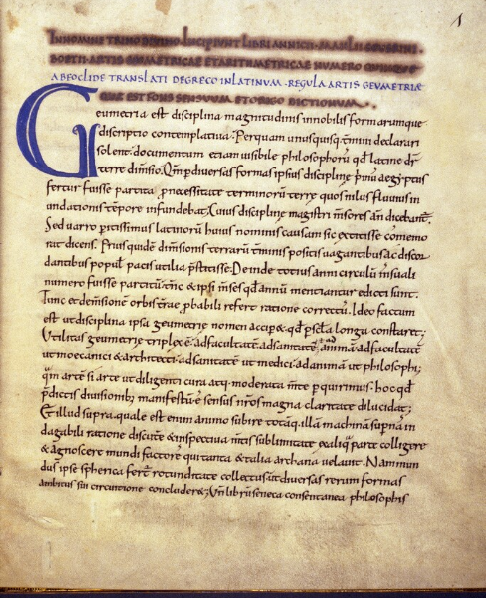 1
IN NOMINE TRINO DIVINO INCIPIUNT LIBRI ANNICII MANLII SEVERINI
BOETII ARTIS GEOMETRICAE ET ARITHMETRICAE NUMERO QUINQUE
AB EOCLIDE TRANSLATI DE GRECO IN LATINUM. REGULA ARTIS GEVMETRIĘ
QUAE EST FONS SENSUUM ET ORIGO DICTIONUM.
Geumetria est disciplina magnitudinis innobilis formarumque
discriptio contemplativa. Perquam unusquisq; declarari
solent. documentum etiam visibile philosophorū qd latine dr
terre dimsio. diversas formas ipsius disciplinę aegyptus
fertur fuisse partita necessitate terminorū terrę quos nilus fluvius in
undationis tēpore infundebat. Cuius disciplinę magistri mſores an dicebant.
Sed varro peritissimus latinorū huius nominis causam sic extitisse cōmemo
rat dicens. Prius quidē dimsionis terrarū positis vagantibus ac disco
dantibus popul pacis utilia pstitisse. Deinde totius anni circulū
numero fuisse partitū; & ipsi menses qd annū mentiantur edicti sunt.
Tunc et demsionē orbis terrae pbabili refert ratione correctū. Ideo factum
est ut disciplina ipsa geumetrię nomen accip& qd longa constaret;
Utilitas geumetrię triplex ē. ad facultatē. ad sanitatē ad animā. ad facultatē
ut moecanici & architecti. ad sanitatē ut medici. ad animā ut philosophi;
qm artē si arte ut diligenti cura atq; moderata mte pquirimus. hoc qd
pdictis divisionib; manifestū ē sensus nros magna claritate dilucidat;
Et illud supra. quale est enim animo subire totāq; illā machinā supnā in
dagabili ratione discutē & inspectiva mtis sublimitate ex aliq parte colligere
& agnoscere mundi factorē qui tanta & talia archana velavit. Nam mun
dus ipse spherica fert rotunditate collectus ut diversas rerum formas
ambitus sui circuitione concluder&; Un librū seneca consentanea philosophis